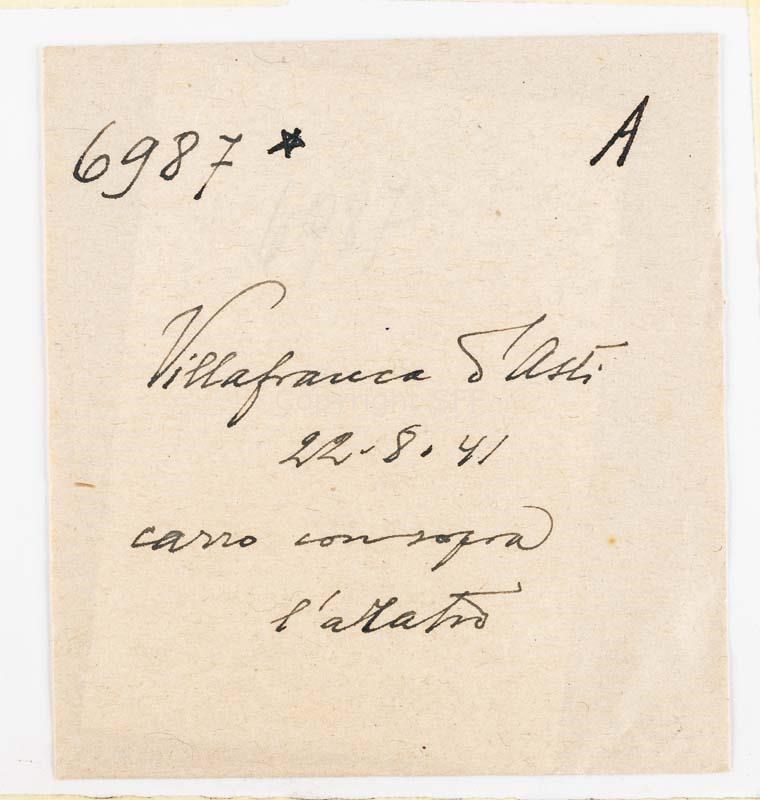 6987 * A
Villafranca d'Asti
22-8.41
carro con sopra
l'aratro